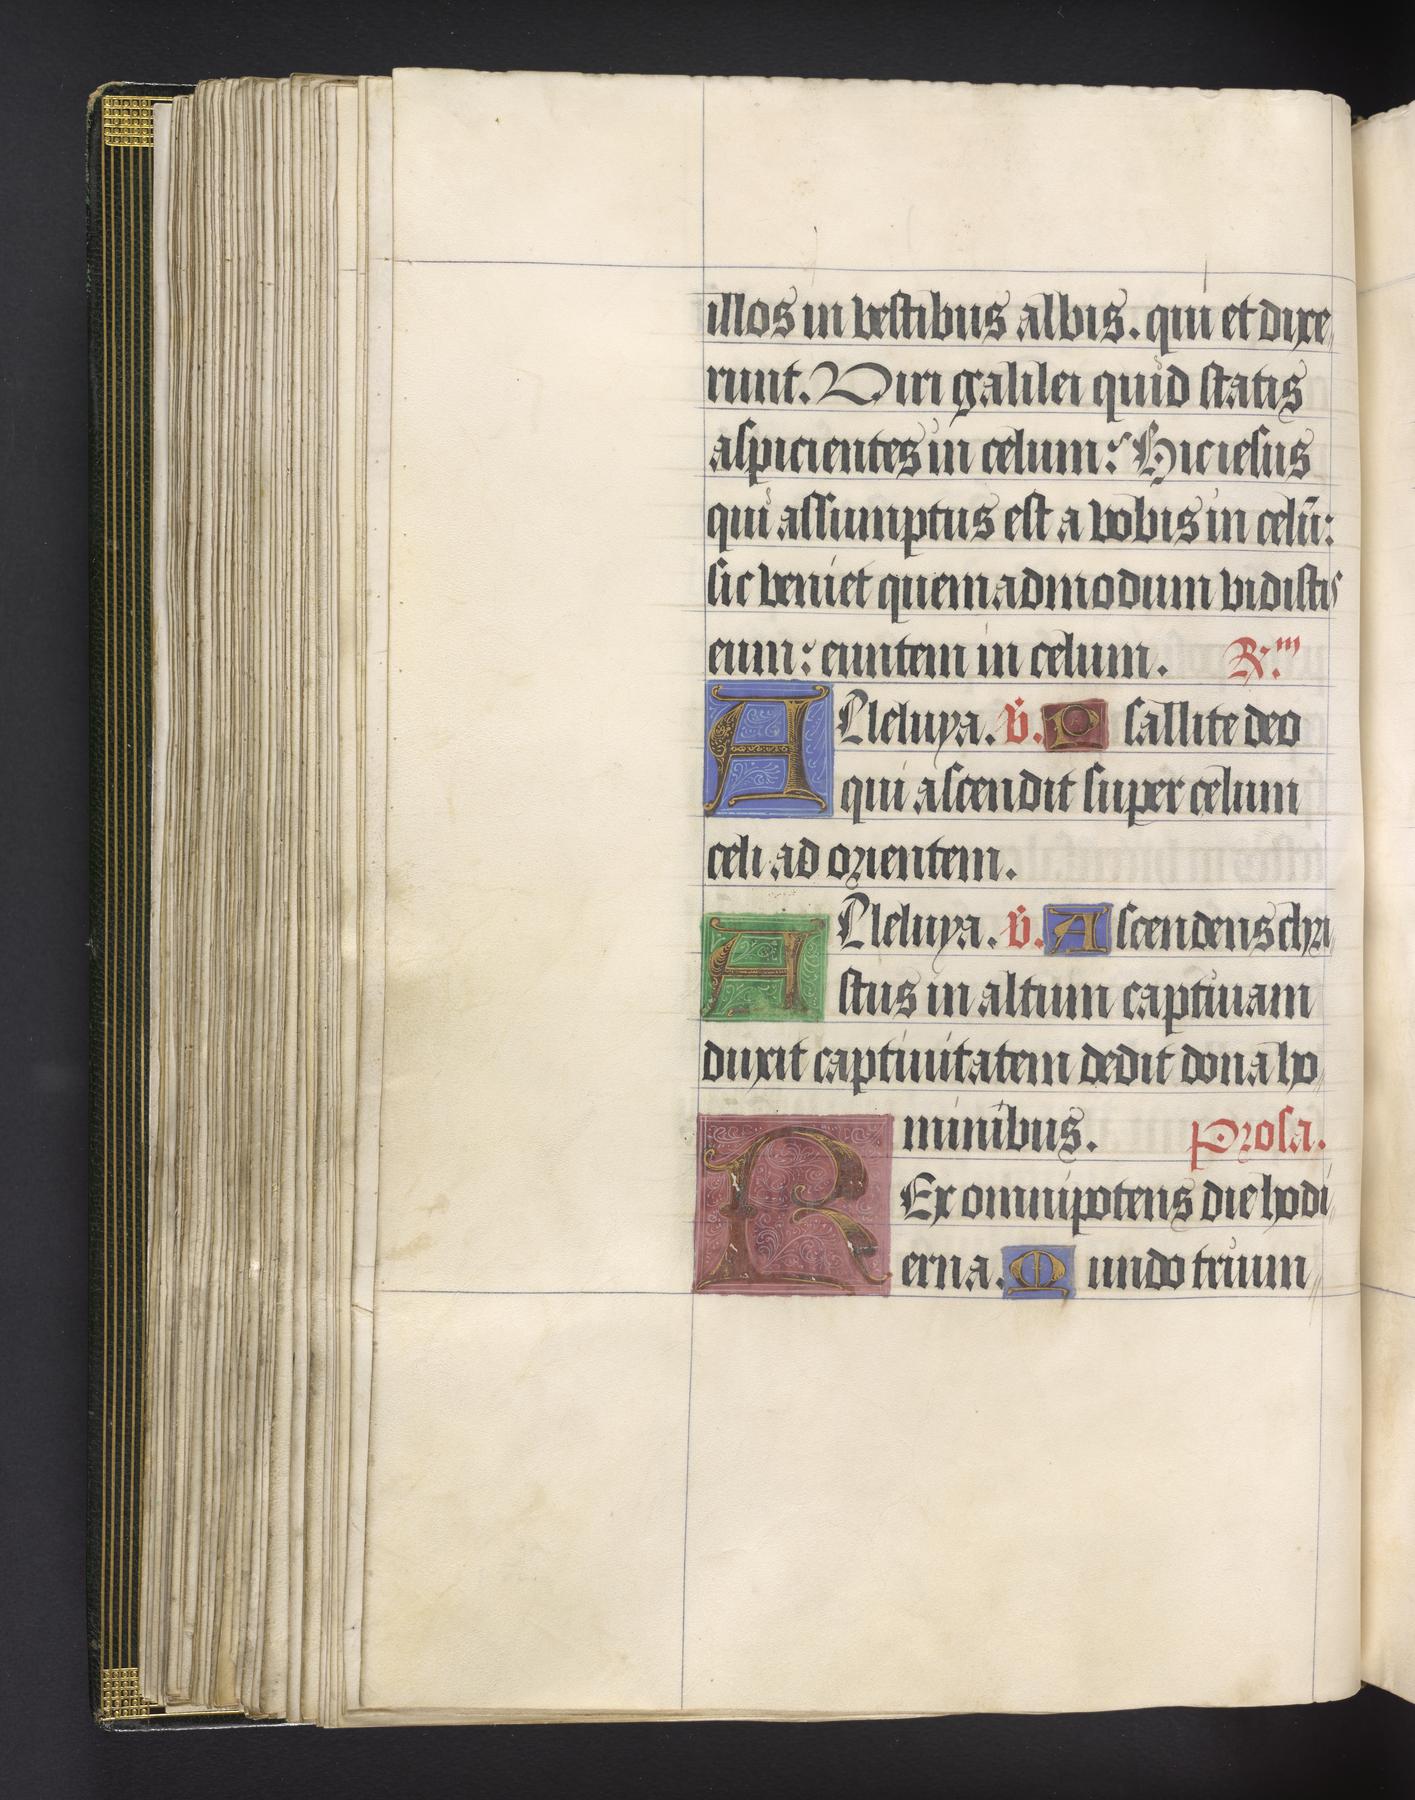 illos in vestibus albis. qui et dixe
runt. Viri galilei quid statis
aspicientes in celum: Hic iesus
qui assumptus est a vobis in celū:
sic veniet quemadmodum vidistis
eum: euntem in celum. R.m
ALleluya. v̄. Psallite deo
qui ascendit super celum
celi ad orientem.
ALleluya. v̄. Ascendens chri
stus in altum captiuam
duxit captiuitatem dedit dona ho
minibus. Prosa.
REx omnipotens die hodi
erna. Mundo trium